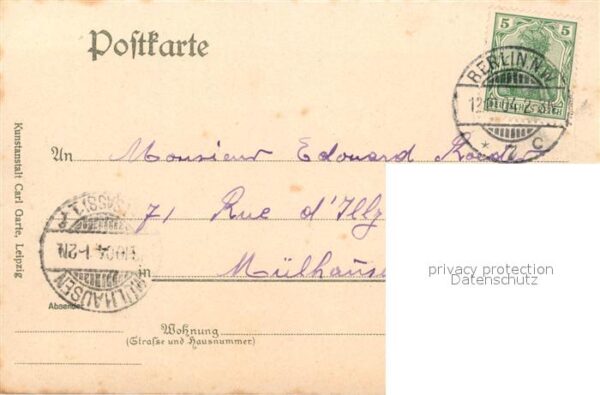 Postkarte
5 5
BERLIN N.W.
7 C
Kunstanstalt Carl Garte, Leipzig
An Monsieur Edouard
71 Rue d'Illz
in Mülhause
MÜLHAUSEN
Absender
Wohnung
(Straße und Hausnummer)
privacy protection
Datenschutz